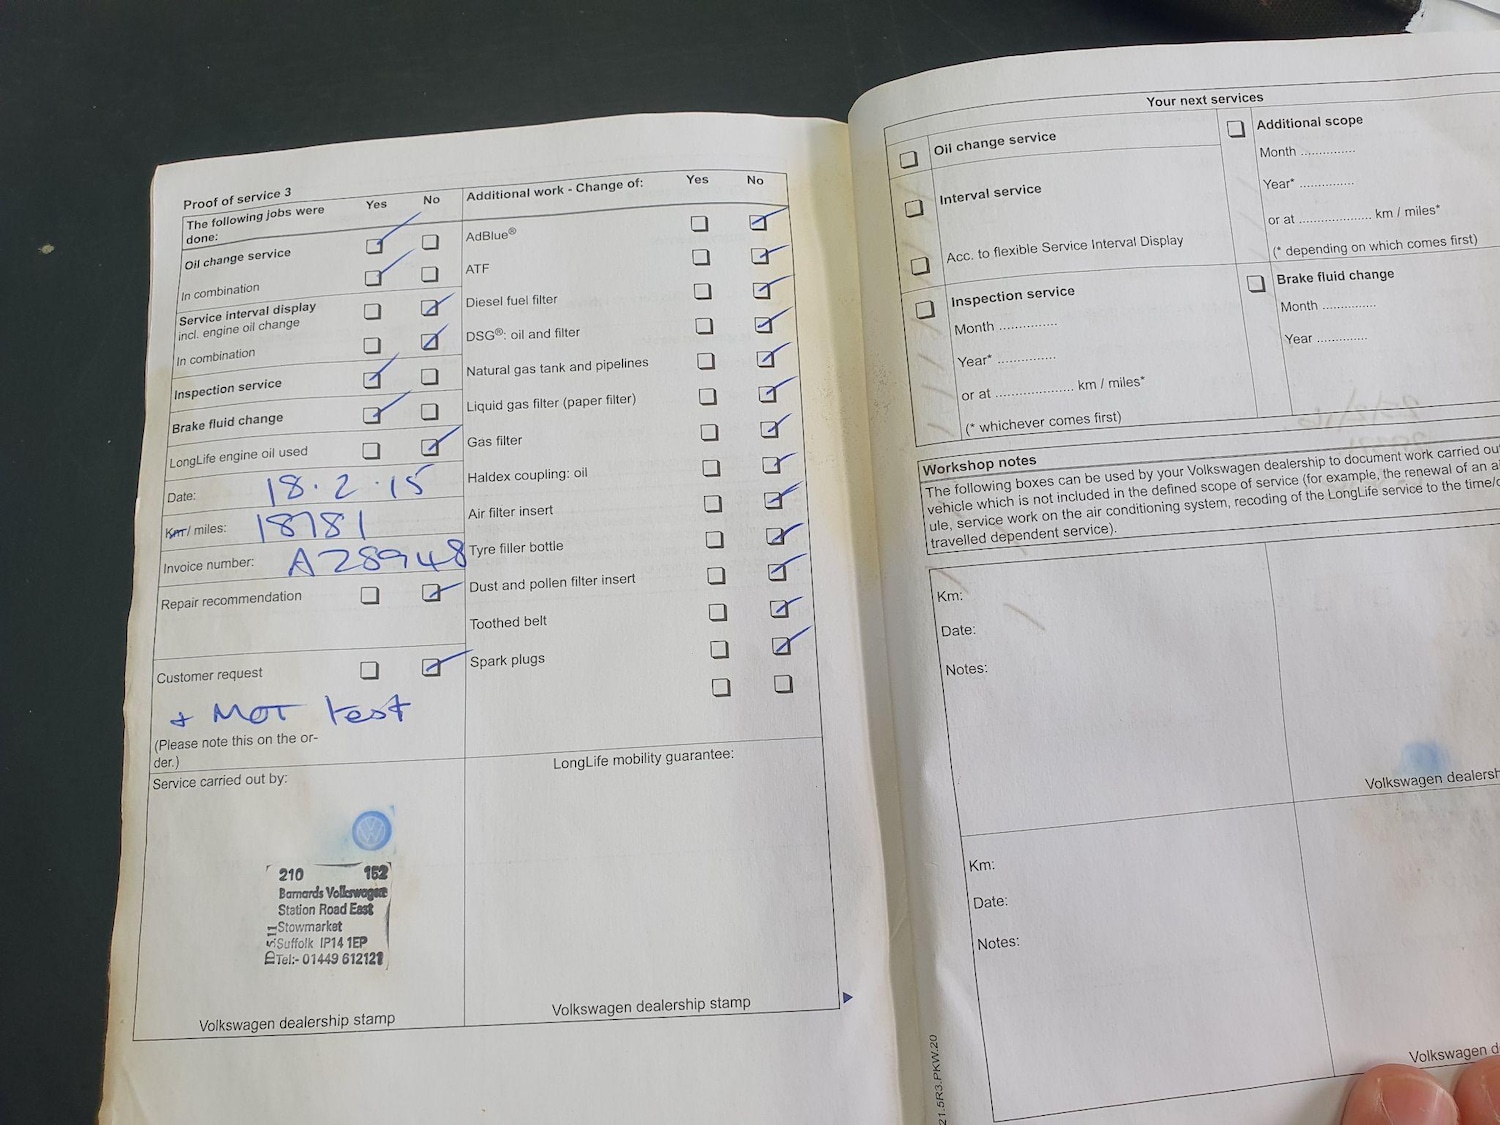 Proof of service 3
The following jobs were done: Yes No
Oil change service
In combination
Service interval display
incl. engine oil change
In combination
Inspection service
Brake fluid change
LongLife engine oil used
Date: 18.2.15
Km / miles: 18781
Invoice number: A28948
Repair recommendation
Customer request
+ MOT test
(Please note this on the or-
der.)
Service carried out by:
210 152
Barnards Volkswagen
Station Road East
Stowmarket
Suffolk IP14 1EP
Tel:- 01449 612121
Volkswagen dealership stamp
Additional work - Change of: Yes No
AdBlue®
ATF
Diesel fuel filter
DSG®: oil and filter
Natural gas tank and pipelines
Liquid gas filter (paper filter)
Gas filter
Haldex coupling: oil
Air filter insert
Tyre filler bottle
Dust and pollen filter insert
Toothed belt
Spark plugs
LongLife mobility guarantee:
Volkswagen dealership stamp
Your next services
Oil change service
Interval service
Acc. to flexible Service Interval Display
Inspection service
Month ...............
Year* ...............
or at .................... km / miles*
(* whichever comes first)
Additional scope
Month ..............
Year* ..............
or at .................... km / miles*
(* depending on which comes first)
Brake fluid change
Month ..............
Year .............
Workshop notes
The following boxes can be used by your Volkswagen dealership to document work carried ou
vehicle which is not included in the defined scope of service (for example, the renewal of an a
ule, service work on the air conditioning system, recoding of the LongLife service to the time/
travelled dependent service).
Km:
Date:
Notes:
Volkswagen dealersh
Km:
Date:
Notes:
Volkswagen d
21.5R3.PKW.20